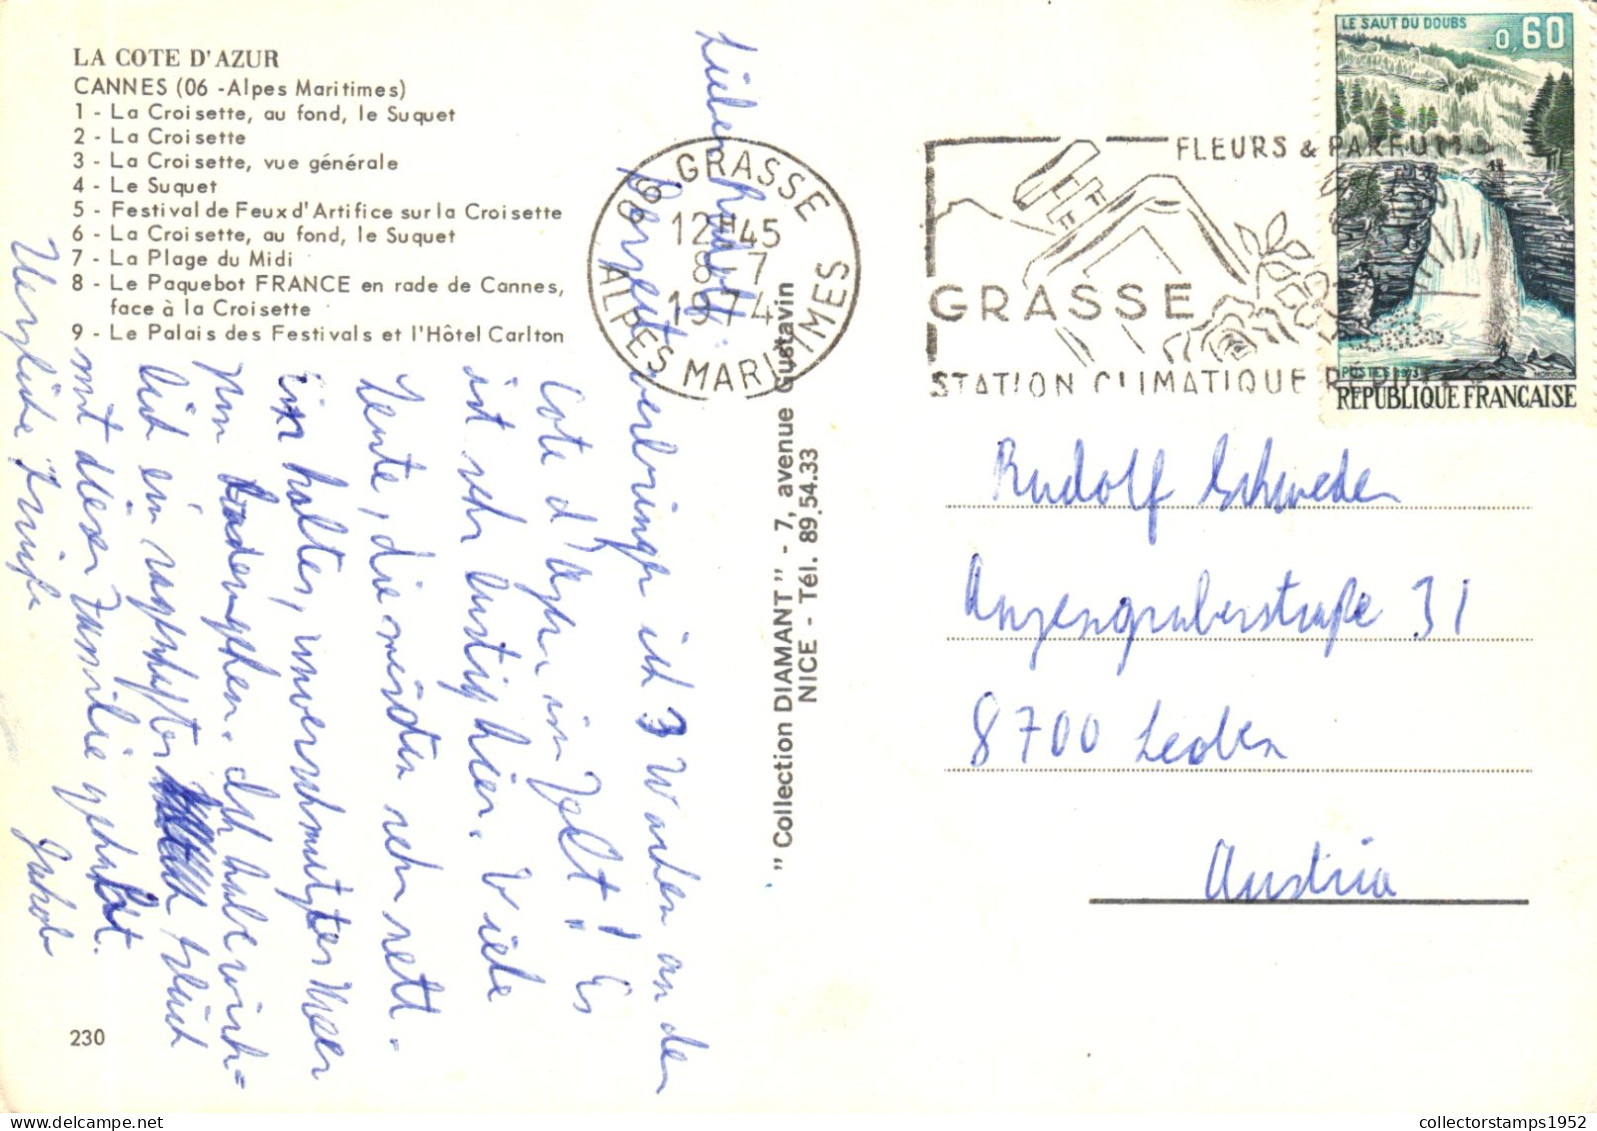 LA COTE D'AZUR
CANNES (06 -Alpes Maritimes)
1 - La Croisette, au fond, le Suquet
2 - La Croisette
3 - La Croisette, vue générale
4 - Le Suquet
5 - Festival de Feux d'Artifice sur la Croisette
6 - La Croisette, au fond, le Suquet
7 - La Plage du Midi
8 - Le Paquebot FRANCE en rade de Cannes,
face à la Croisette
9 - Le Palais des Festivals et l'Hôtel Carlton
230
Lieber Rudolf!
Derzeit verbringe ich 3 Wochen an der
Cote d'Azur im Zelt! Es
ist sehr lustig hier. Viele
Leute, die meisten sehr nett.
ein kaltes, unverschmutztes Meer
zum Badengehen. Ich habe wirk=
lich ein Glück
mit dieser Familie gehabt.
Herzliche Grüße
Jakob
" Collection DIAMANT " - 7, avenue Gustavin
NICE - Tél. 89.54.33
06 GRASSE
12H45
8-7
1974
ALPES MARITIMES
FLEURS & PARFUMS
GRASSE
STATION CLIMATIQUE
LE SAUT DU DOUBS
0,60
POSTES 1973
RÉPUBLIQUE FRANÇAISE
Rudolf Schweden
Anzengruberstraße 31
8700 Leoben
Austria
collectorstamps1952